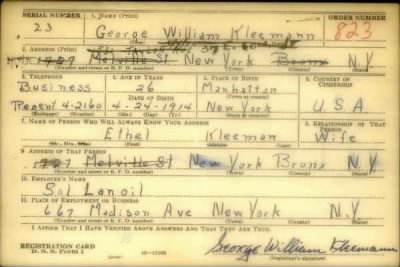 SERIAL NUMBER 1. NAME (Print) ORDER NUMBER
23 George William Kleemann 823
(First) (Middle) (Last)
2. ADDRESS (Print)
1927 Melville St New York Bronx N.Y
(Number and street or R. F. D. number) (Town) (County) (State)
3. TELEPHONE 4. AGE IN YEARS 5. PLACE OF BIRTH 6. COUNTRY OF CITIZENSHIP
Business 26 Manhattan
DATE OF BIRTH
4-2160 4-24-1914 New York U.S.A.
7. NAME OF PERSON WHO WILL ALWAYS KNOW YOUR ADDRESS 8. RELATIONSHIP OF THAT PERSON
Ethel Kleeman Wife
9. ADDRESS OF THAT PERSON
1927 Melville St New York Bronx N.Y
(Number and street or R. F. D. number) (Town) (County) (State)
10. EMPLOYER'S NAME
Sol Lanoil
11. PLACE OF EMPLOYMENT OR BUSINESS
667 Madison Ave New York N.Y
(Number and street or R. F. D. number) (Town) (County) (State)
I AFFIRM THAT I HAVE VERIFIED ABOVE ANSWERS AND THAT THEY ARE TRUE.
REGISTRATION CARD
D. S. S. FORM 1 George William Kleemann
(Registrant's signature)